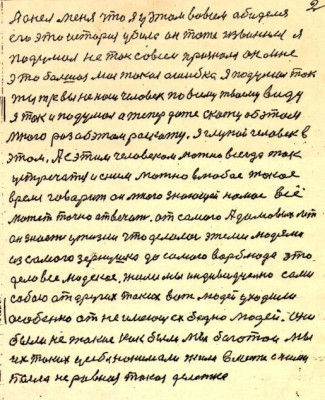 2
понел меня что я у этом вовсем абиделся
его это истори убила он тоже извинился я
подумал не так совсем признал он мне
это большая моя такая ошибка я подумал так
ты же вы не наш человек по виду твоему виду
я так и подумал а теперь даже скажу об этом
много раз об этом раскажу. Я глупой человек в
этом. А с этим человеком можно всегда так
устречатся и с ним можно в любое такое
врем говорит он много знающей на мое всё
может точно отвечать. от самого Адамовых лет
он знает у жизни что делалос этими людями
из самого зернушка до самого верблюда это
дело все людское. жили мы индивидуелно сами
собою от других таких вот людей уходили
особенно от не имеющех бедно людей. Они
были не такие как были мы боготои мы
их таких у себя нанимали жила вмести с ними
была не равная такая дележка